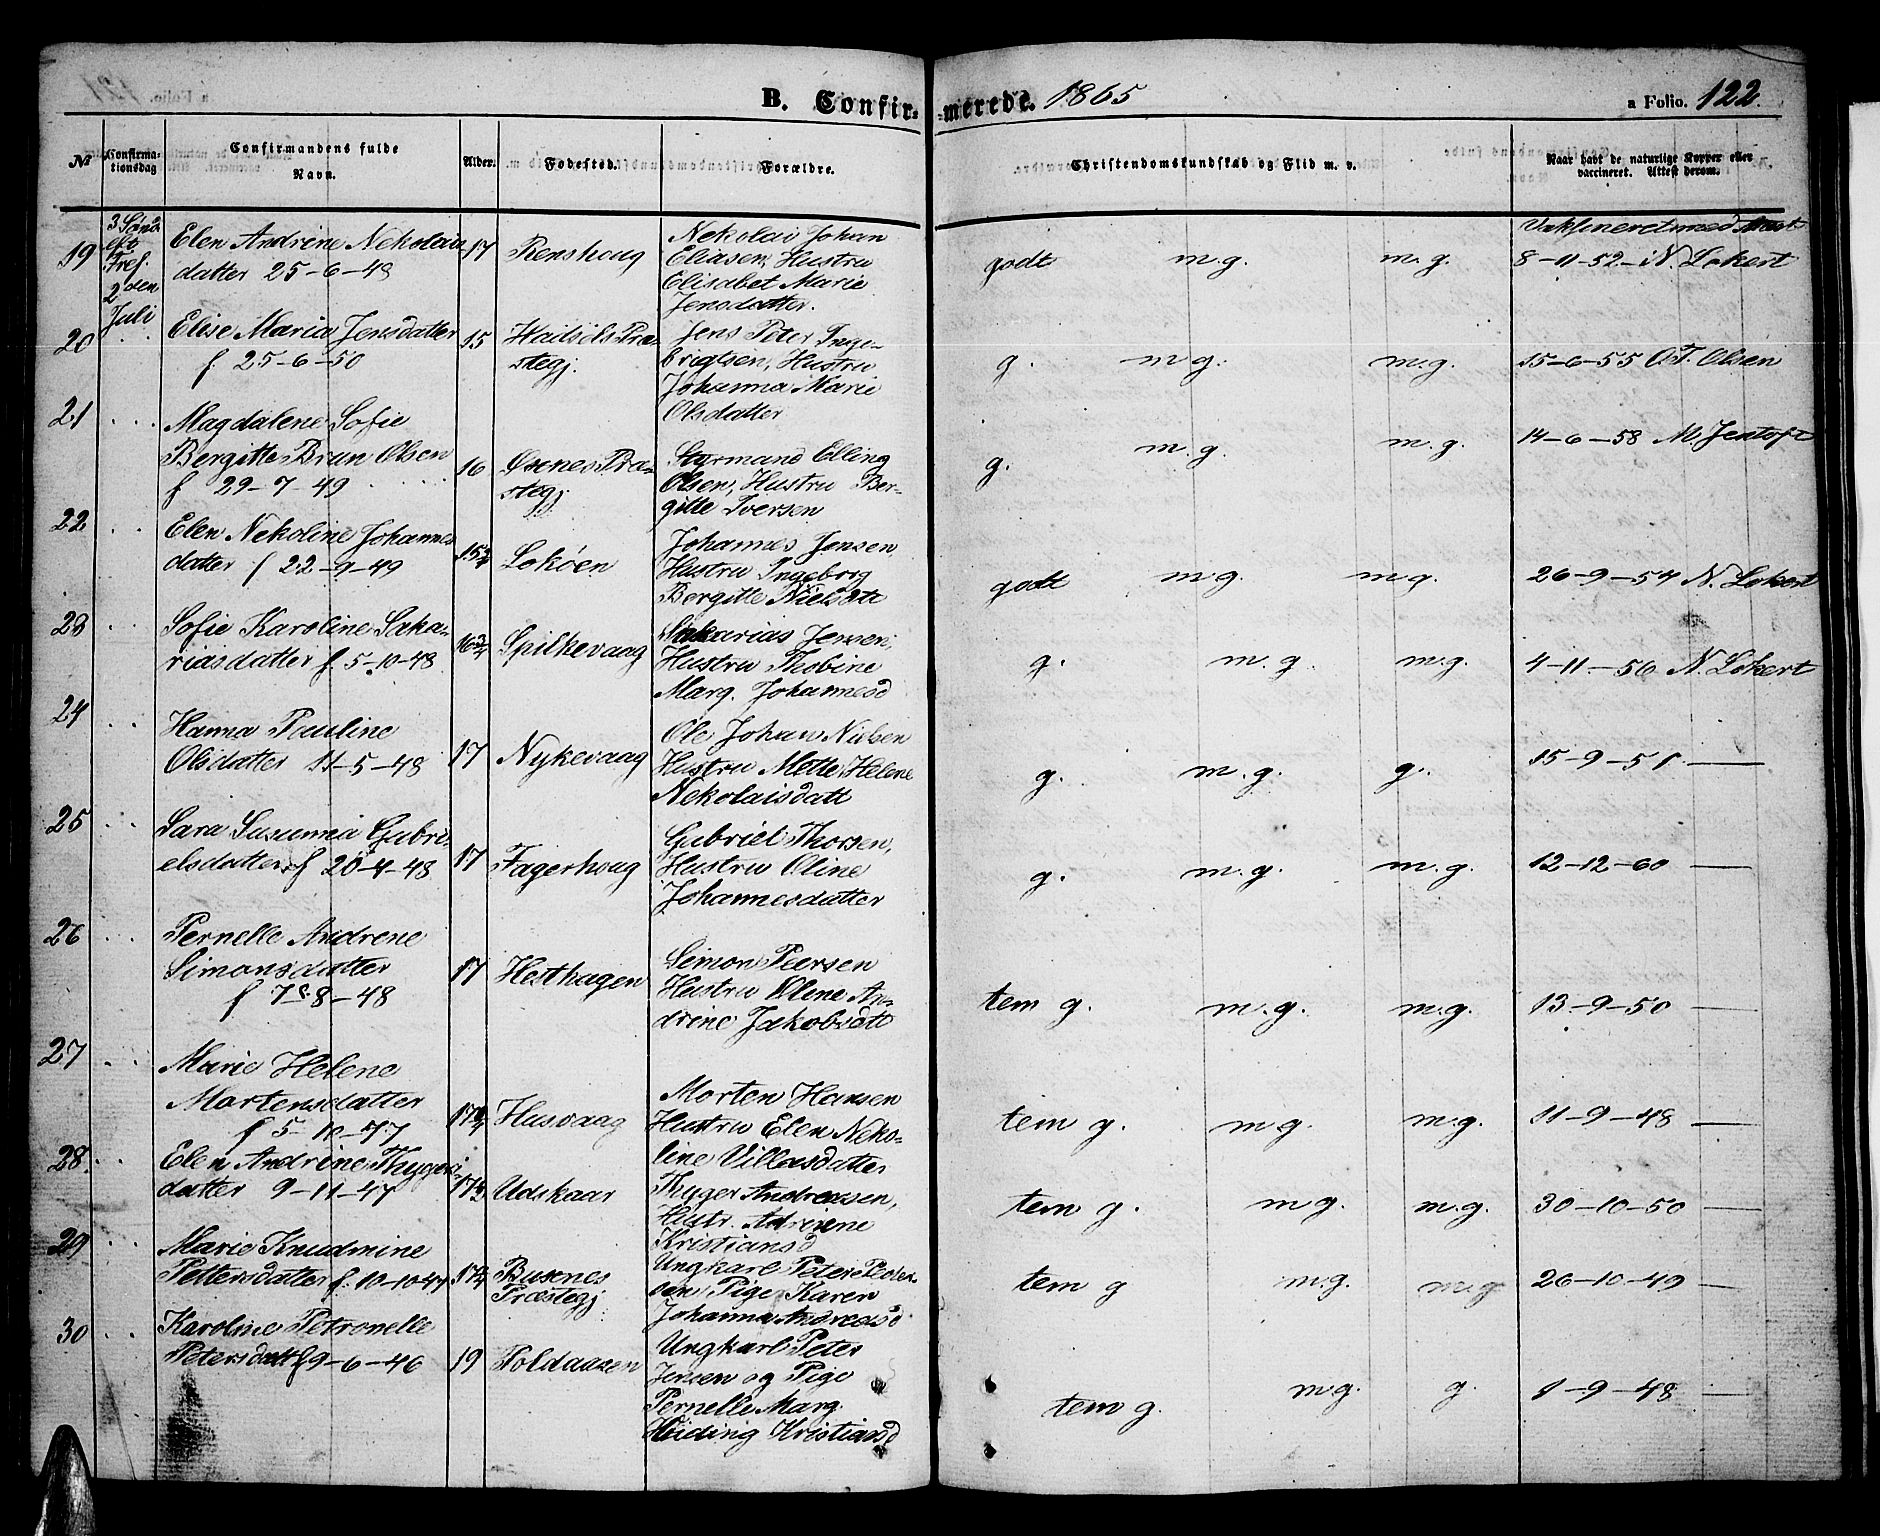 B. Confir-merede. 1865
a Folio. 122.
No Confirmationsdag Confirmandens fulde Navn. Alder. Fødested. Forældre. Christendomskundskab og Flid m. v. Naar havt de naturlige Kopper eller vaccineret. Attest derom.
19 3 Sønd. eft Tref. 2den Juli
Elen Andrine Nekolai-
datter 25-6-48
17 Renshoug
Nekolai Johan
Eliasen, Hustru
Elisabet Marie
Jensdatter.
godt m.g. m.g.
Vaksineret med Attest
8-11-52 - N. Lokert
20 Elise Maria Jensdatter
f 25-6-50
15 Hadsels Præ-
stegj.
Jens Peter Inge-
brigtsen, Hustru
Johanna Marie
Olsdatter
g. m g. m.g.
15-6-55 O.T. Olsen
21 Magdalene Sofie
Bergitte Brun Olsen
f 29-7-49
16 Øxnes Præ-
stegj
Styrmand Elling
Olsen, Hustru Ber-
gitte Iversen
g. m.g. m.g.
14-6-58 M. Jentoft
22 Elen Nekoline Johannes
datter f 22-9-49
15 3/4 Lokøen
Johannes Jensen
Hustru Ingeborg
Bergitte Nielsdtt
godt m.g. m.g.
26-9-54 N. Lokert
23 Sofie Karoline Saka-
riasdatter f 5-10-48
16 3/4 Spilkevaag
Sakarias Jensen,
Hustru Thobine
Marg. Johannesd
g. m.g. m.g.
4-11-56 N. Lokert
24 Hanna Pauline
Olsdatter 11-5-48
17 Nykevaag
Ole Johan Nielsen
Hustru Mette Helene
Nekolaisdatt
g. m.g. g.
15-9-51 —
25 Sara Susanna Gabri-
elsdatter f 20-4-48
17 Fagerhoug
Gabriel Thorsen,
Hustru Oline
Johannesdatter
g. m.g. m.g.
12-12-60 —
26 Pernelle Andrene
Simonsdatter
f 7-8-48
17 Hesthagen
Simon Peersen
Hustru Oline An-
drene Jakobsdtt
tem g. m.g. m.g.
13-9-50 —
27 Marie Helene
Martensdatter
f 5-10-47
17 3/4 Husvaag
Morten Hansen
Hustru Elen Neko-
line Villasdatter
tem g. m.g. m.g.
11-9-48 —
28. Elen Andrine Thyger-
datter 9-11-47
17 1/2 Udskaar
Thyger Andreasen,
Hustr. Adriene
Kristiansd
tem g. m.g. m.g.
30-10-50 —
29 Marie Knudmine
Pettersdatter f. 10-10-47
17 3/4 Buxnes
Præstegj
Ungkarl Peter Peder-
sen Pige Karen
Johanna Andreasd
tem g m.g. m.g
26-10-49 —
30 Karoline Petronelle
Petersdatt f 9-6-46
19 Poldaasen
Ungkarl Peter
Jensen og Pige
Pernelle Marg.
Høiding Kristiansd
tem g. m.g. g.
1-9-48 —